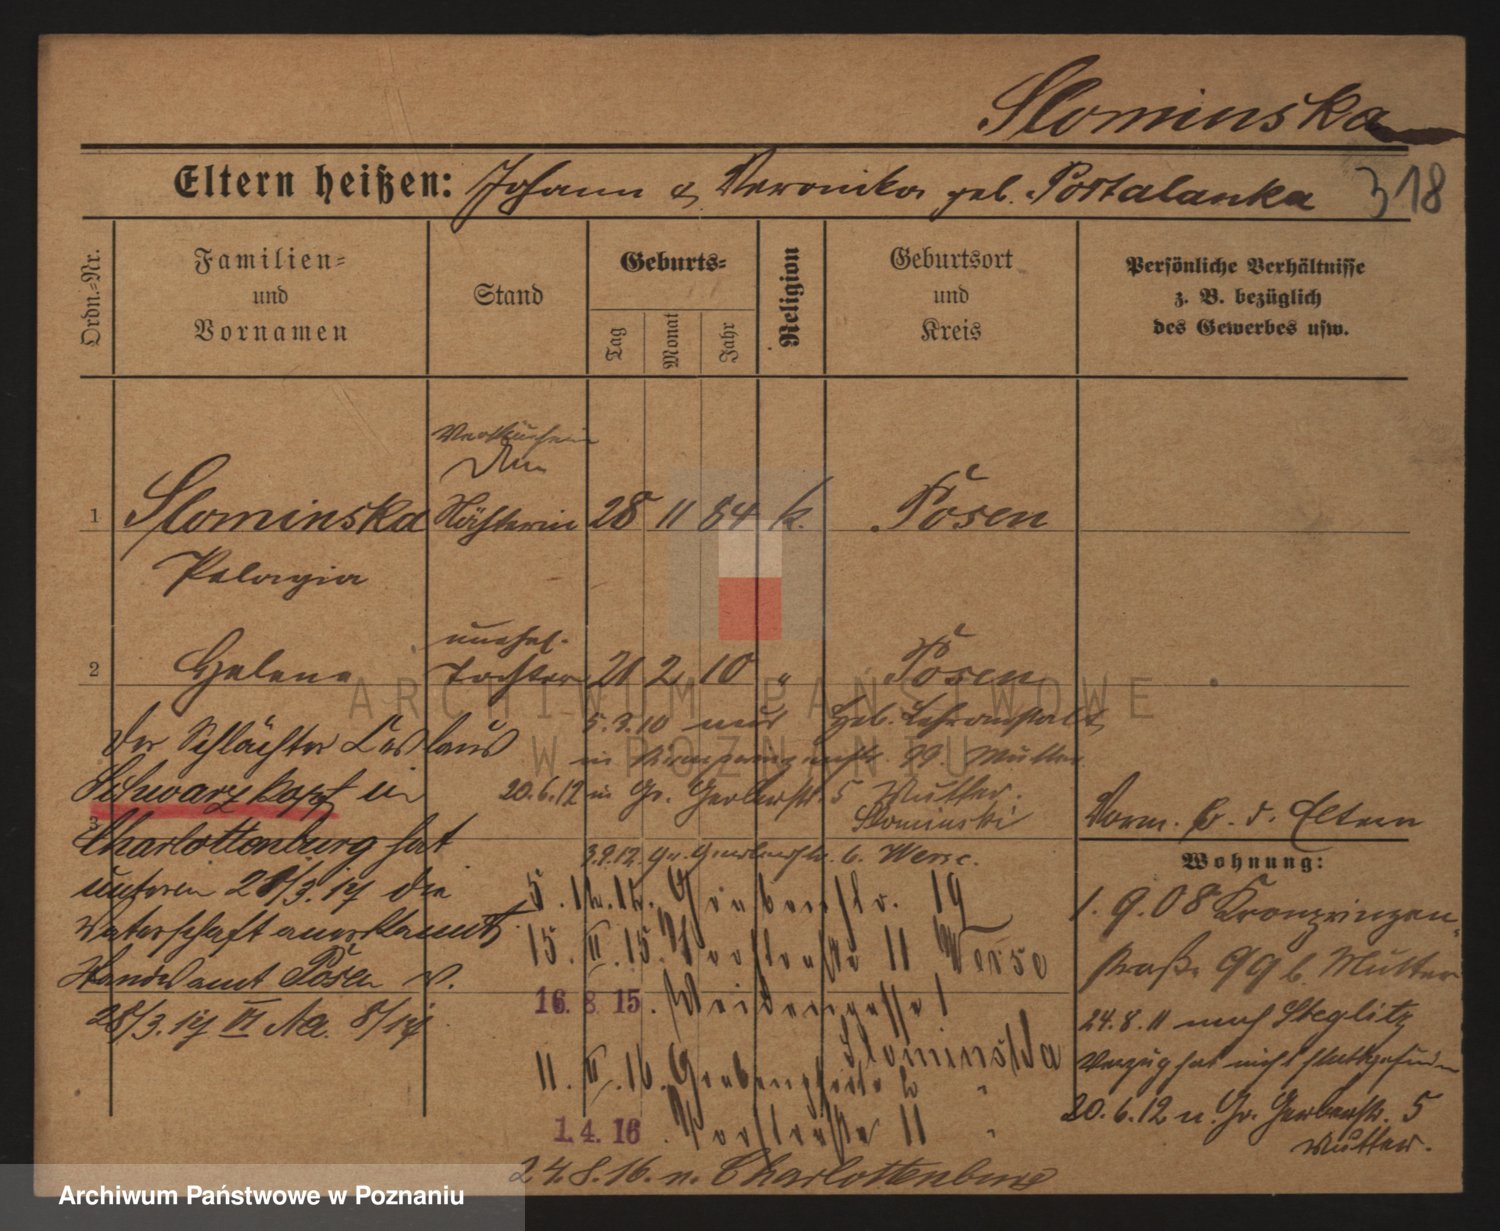 Slominska
Eltern heißen: Johann & Veronika geb. Postalanka 318
Ordn.-Nr.
Familien-
und
Vornamen
Stand
Geburts-
Tag
Monat
Jahr
Religion
Geburtsort
und
Kreis
Persönliche Verhältnisse
z. B. bezüglich
des Gewerbes usw.
Verkäuferin
1 Slominska Näherin 28 11 84 k. Posen
Pelagia
unehel.
2 Helene Tochter 21 2 10 " Posen
5.3.10 aus Heb. Lehranstalt
in 99 Mutter
20.6.12 n Gr. Gerberstr. 5 Mutter.
Slominski
3.9.12. Gr. Gerberstr. 6. Werse.
5.12.12. Grabenstr. 19
15. II. 15. Vorstraße 11 Werse
16. 8 15. Weidengasse 1
Slominska
11. II. 16. Grabenpforte 2 "
1. 4. 16. Vorstraße 11 "
24.8.16. n. Charlottenburg
der Schlächter Ceslaus
Schwarzkopf in
3
Charlottenburg hat
unterm 28/3.14 die
Vaterschaft anerkannt
Standesamt Posen v.
28/3.14 VI Aa. 8/14
Vorm. b. d. Eltern
Wohnung:
1. 9. 08 Kronprinzen-
straße 99 b. Mutter
24.8.11 nach Steglitz
Verzug hat nicht stattgefunden
20.6.12 n. Gr. Gerberstr. 5
Mutter.
ARCHIWUM PAŃSTWOWE
W POZNANIU
Archiwum Państwowe w Poznaniu